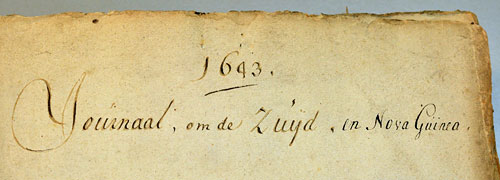 1643.
Journaal, om de Zuijd, en Nova Guinea.